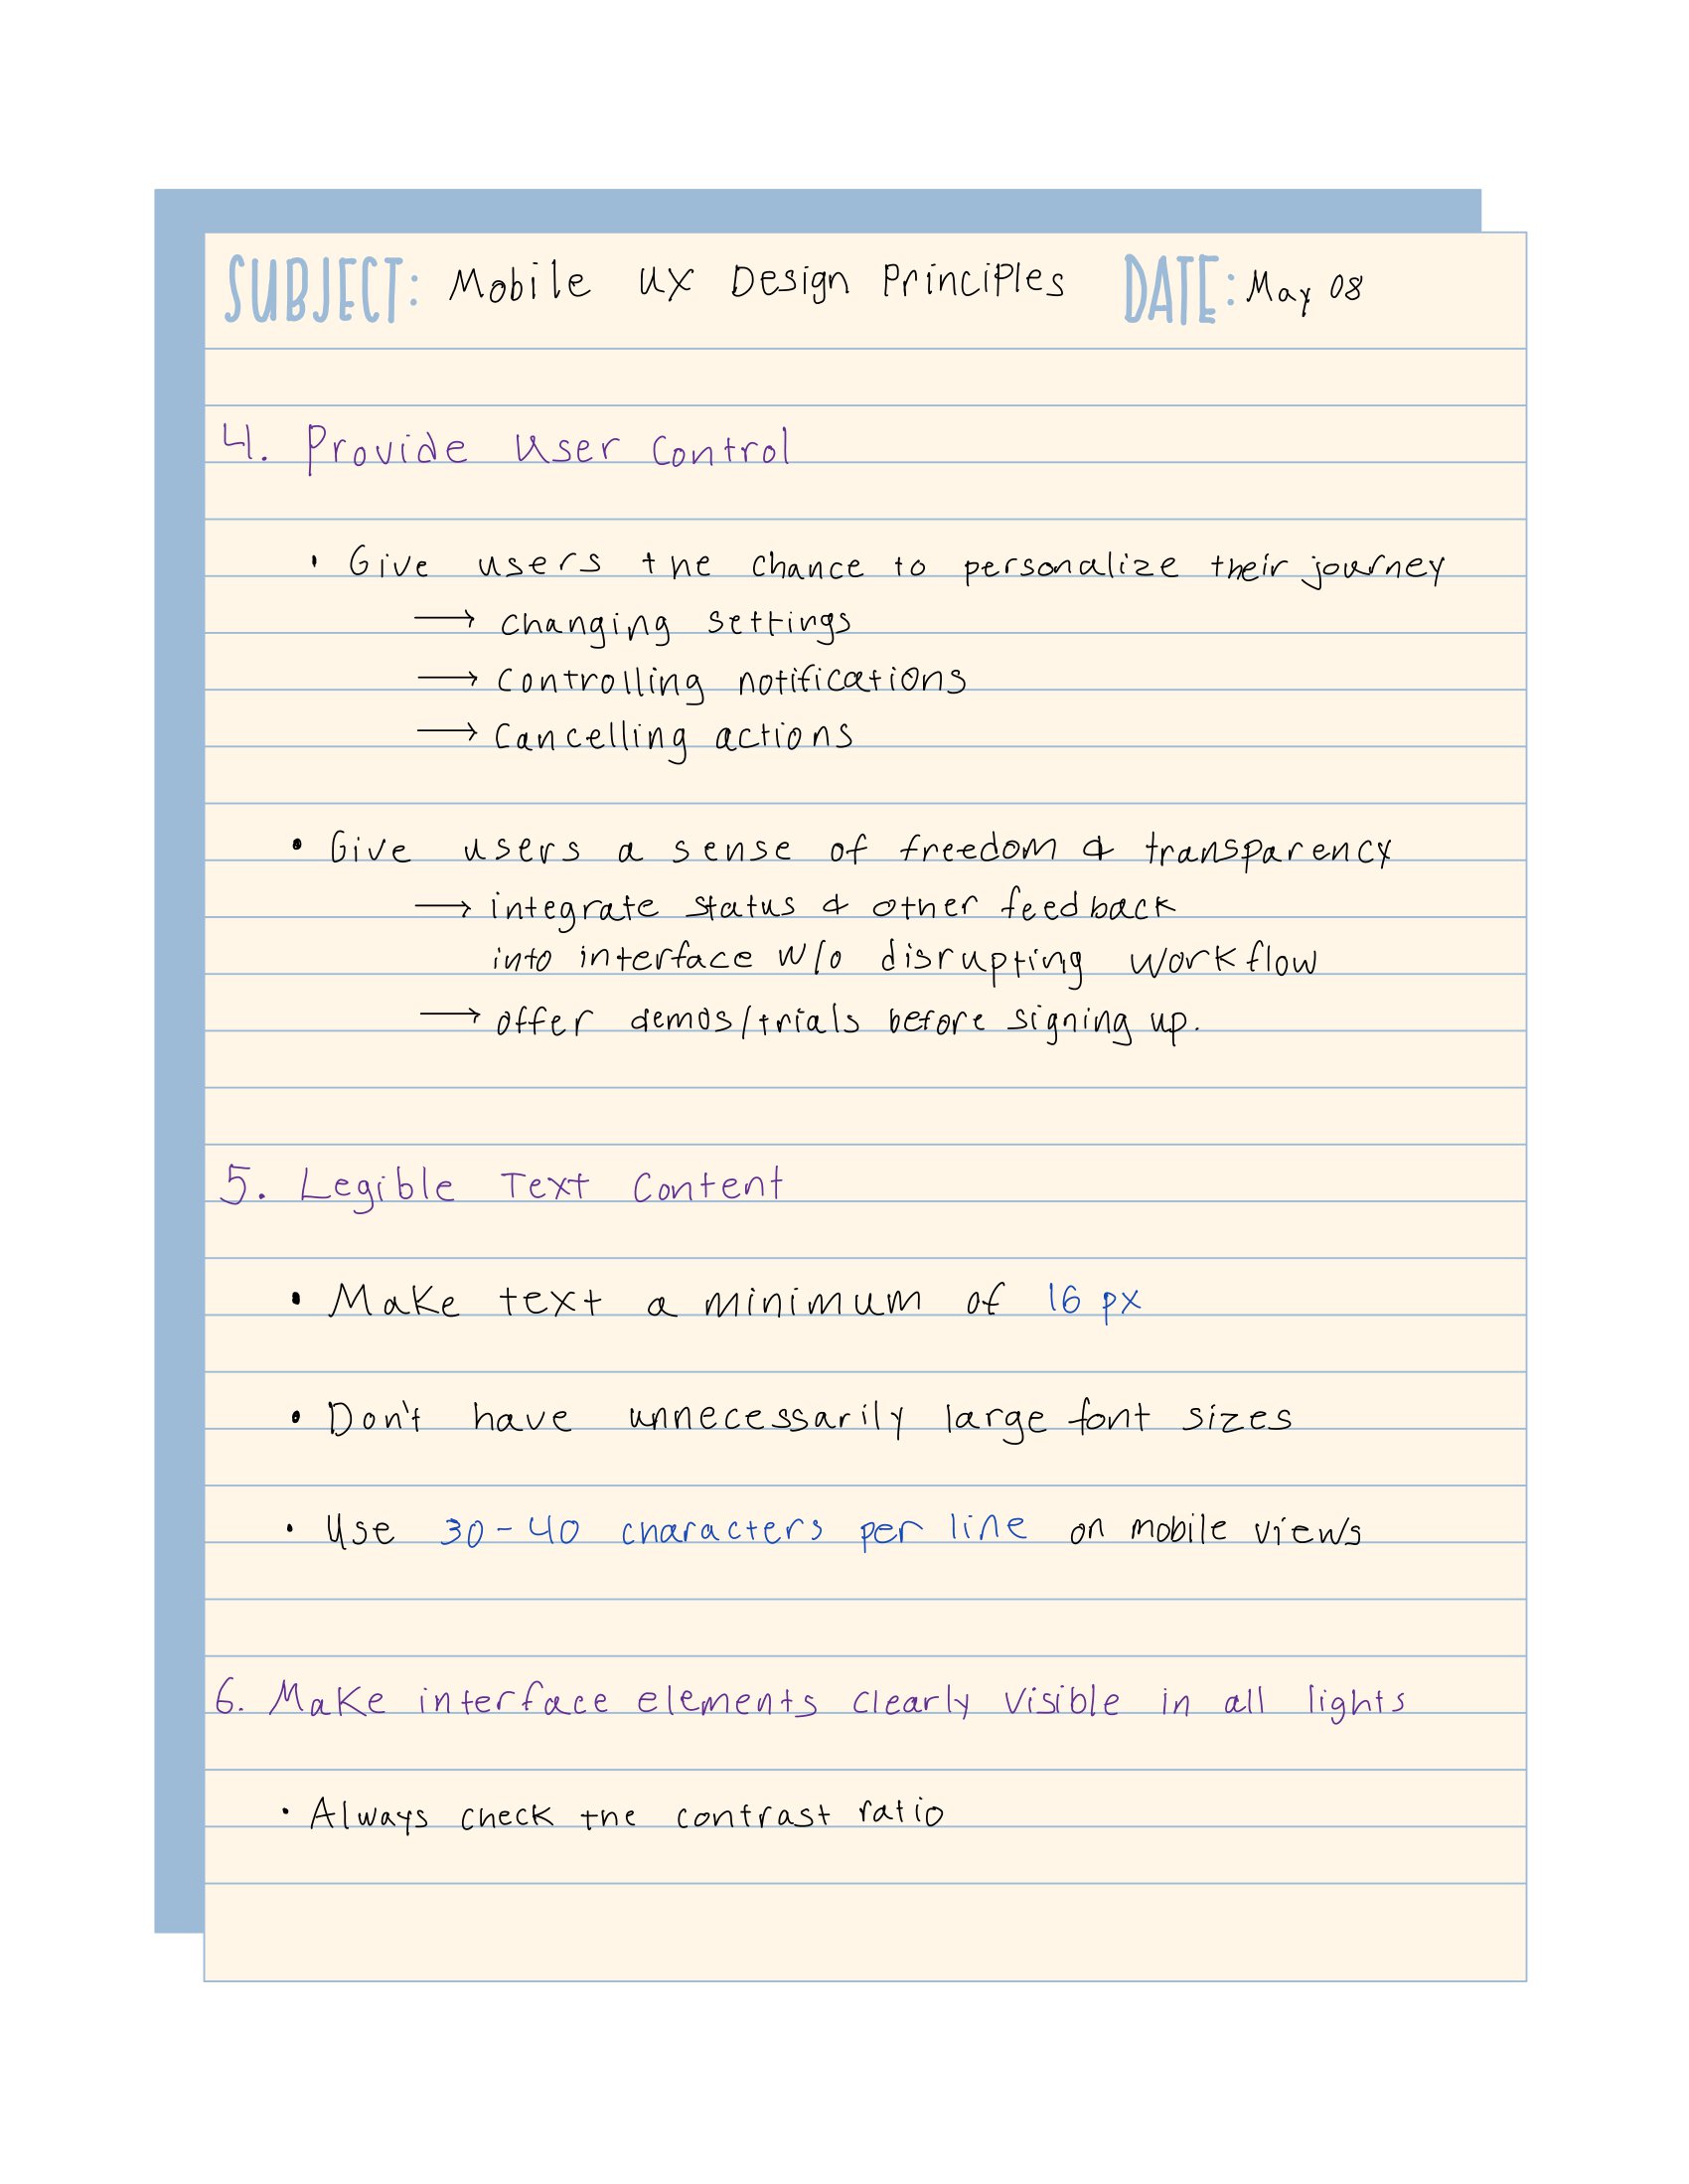 SUBJECT: Mobile UX Design Principles DATE: May 08
4. Provide User Control
• Give users the chance to personalize their journey
→ changing settings
→ Controlling notifications
→ Cancelling actions
• Give users a sense of freedom & transparency
→ integrate status & other feedback
into interface w/o disrupting workflow
→ offer demos/trials before signing up.
5. Legible Text Content
• Make text a minimum of 16 px
• Don't have unnecessarily large font sizes
• Use 30-40 characters per line on mobile views
6. Make interface elements clearly visible in all lights
• Always check the contrast ratio